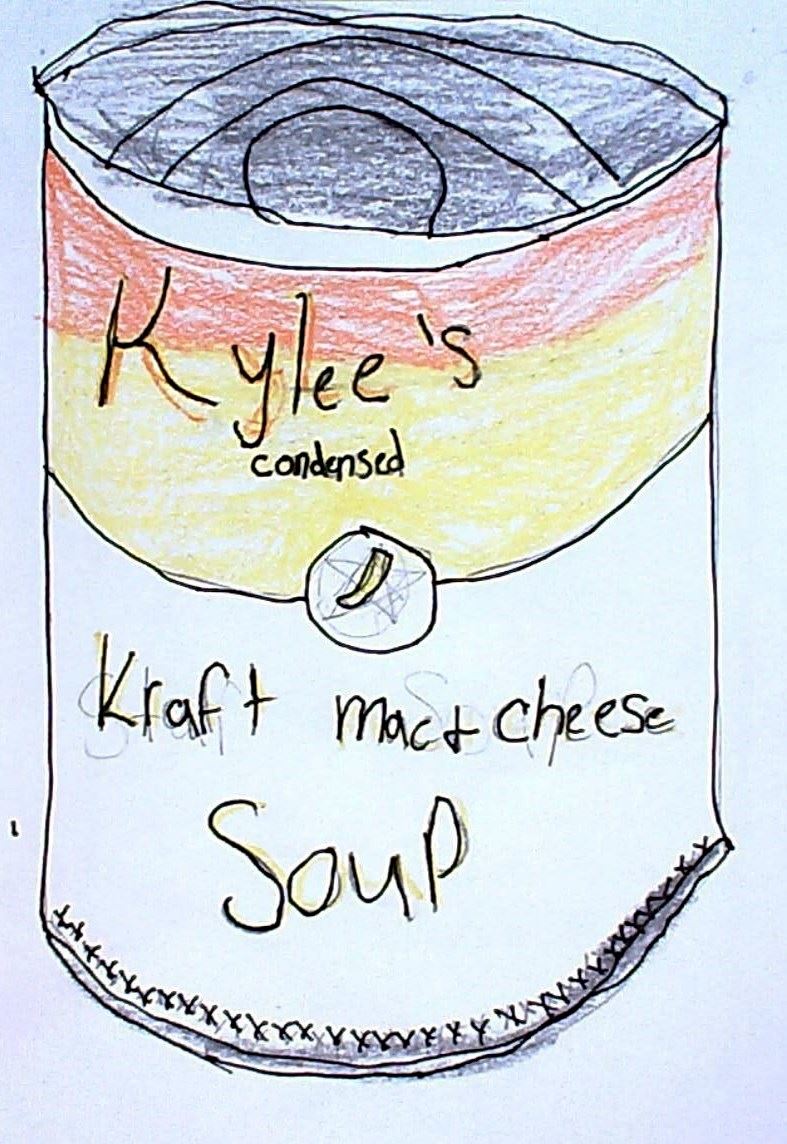 Kylee's
condensed
Kraft mac+cheese
Soup